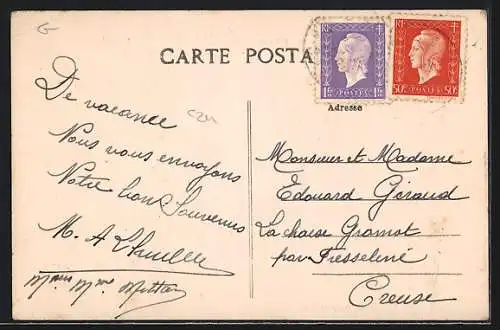 CARTE POSTA
RF RF
1F POSTES 1F
50c POSTES 50c
Adresse
De vacance
Nous vous envoyons
Notre bons Souvenirs
M. A
Monsieur et Madame
Edouard Géraud
La chaise Gramot
par Fresseline
Creuse